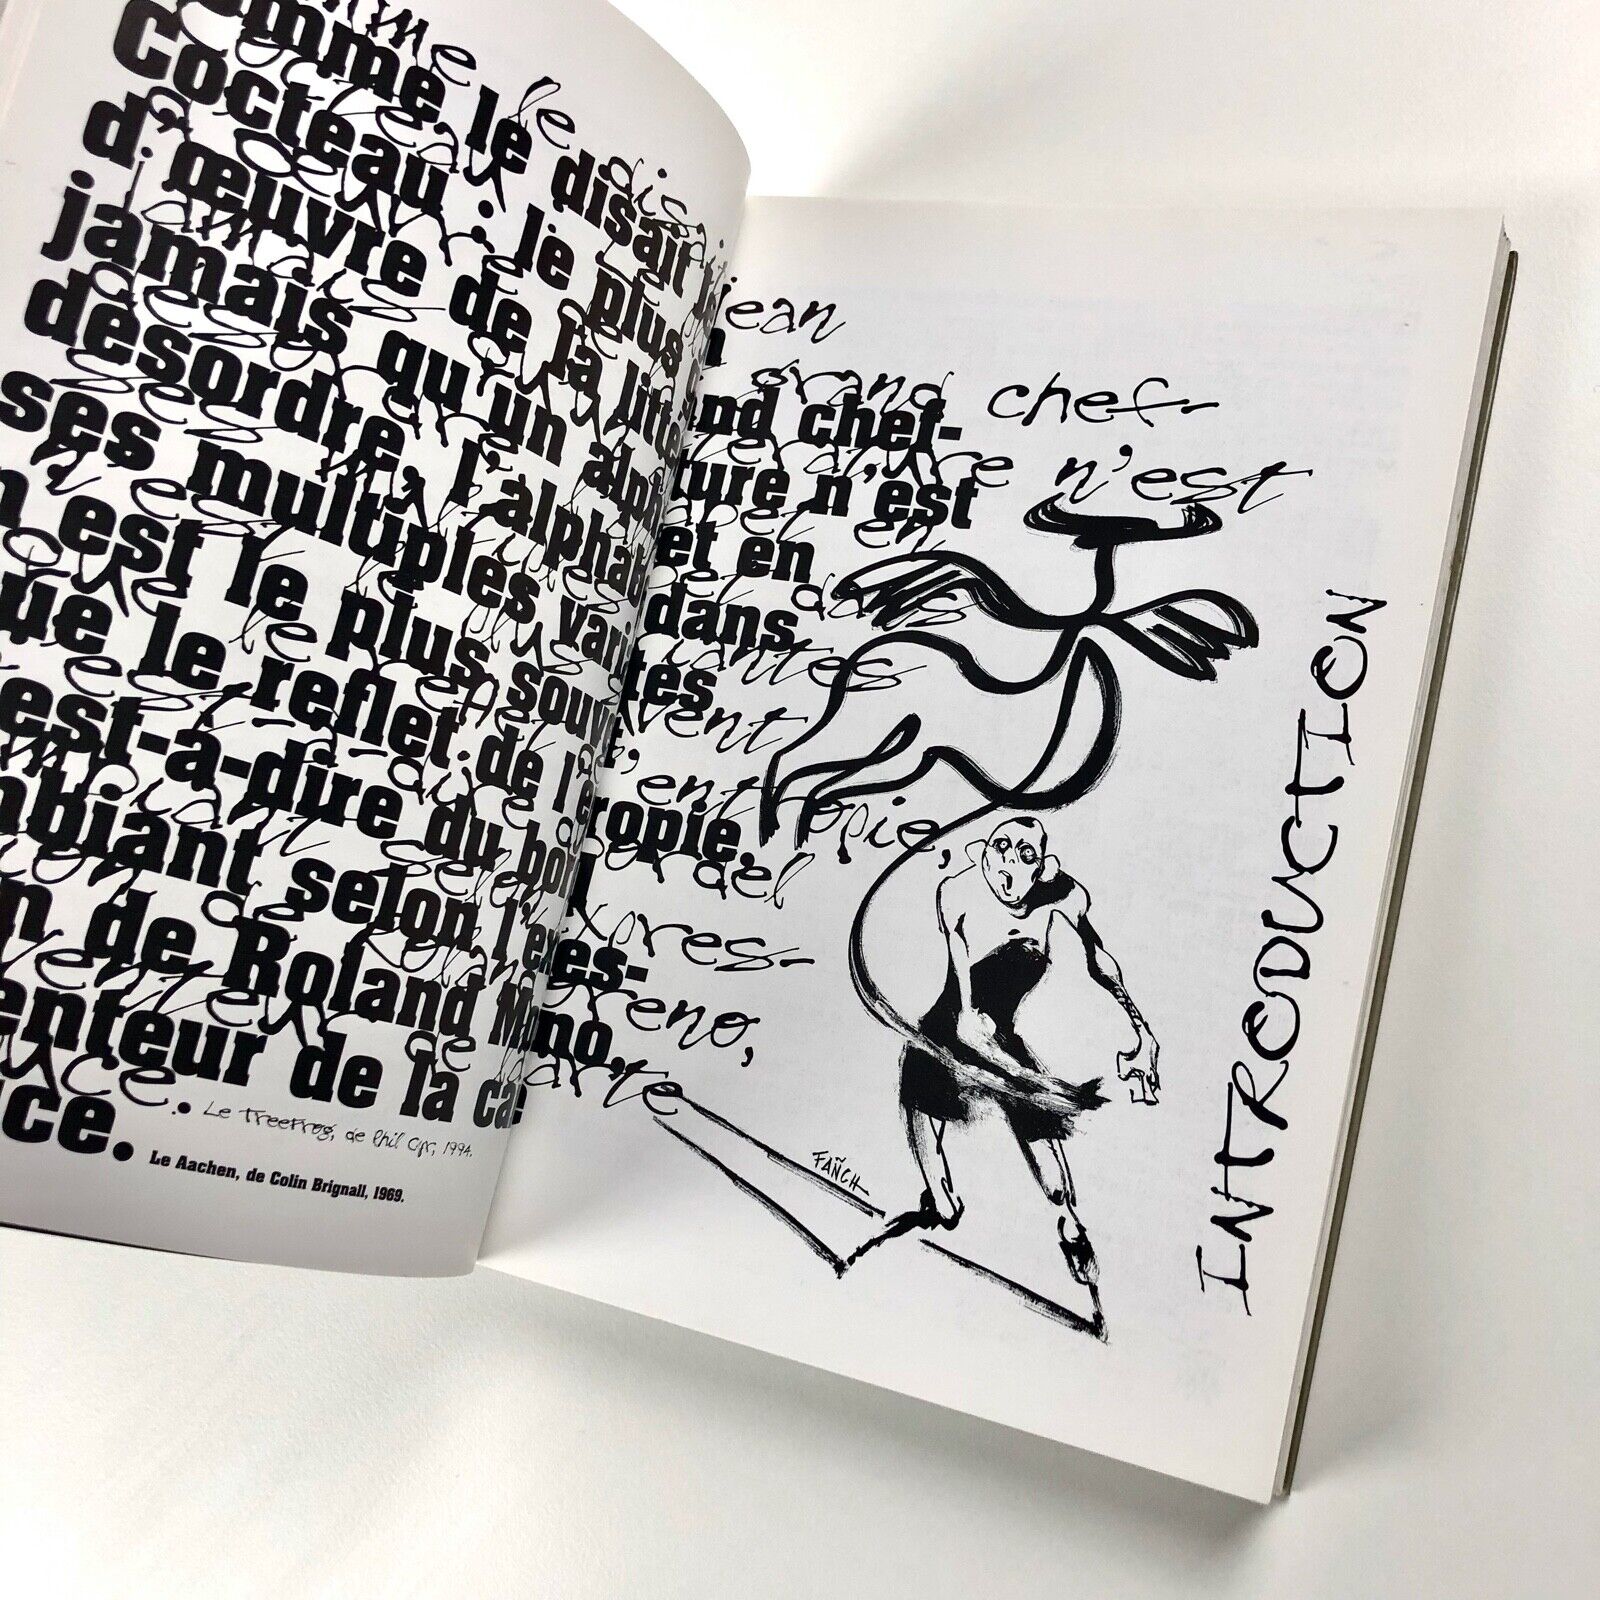 omme le disait Jean
Cocteau : le plus grand chef-
d'œuvre de la littérature n'est
jamais qu'un alphabet en
désordre, l'alphabet dans
ses multiples variantes
n'est le plus souvent
que le reflet de l'entropie,
est-à-dire du bordel
mbiant selon l'expres-
n de Roland Moreno,
enteur de la carte
uce.
Le Treefrog, de Phil Cyr, 1994.
Le Aachen, de Colin Brignall, 1969.
FAÑCH
INTRODUCTION